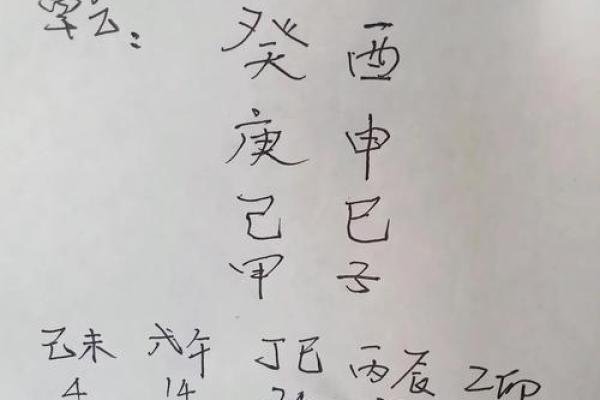 乾:
癸酉
庚申
己巳
甲子
己未 戊午 丁巳 丙辰 乙卯
4 14 24